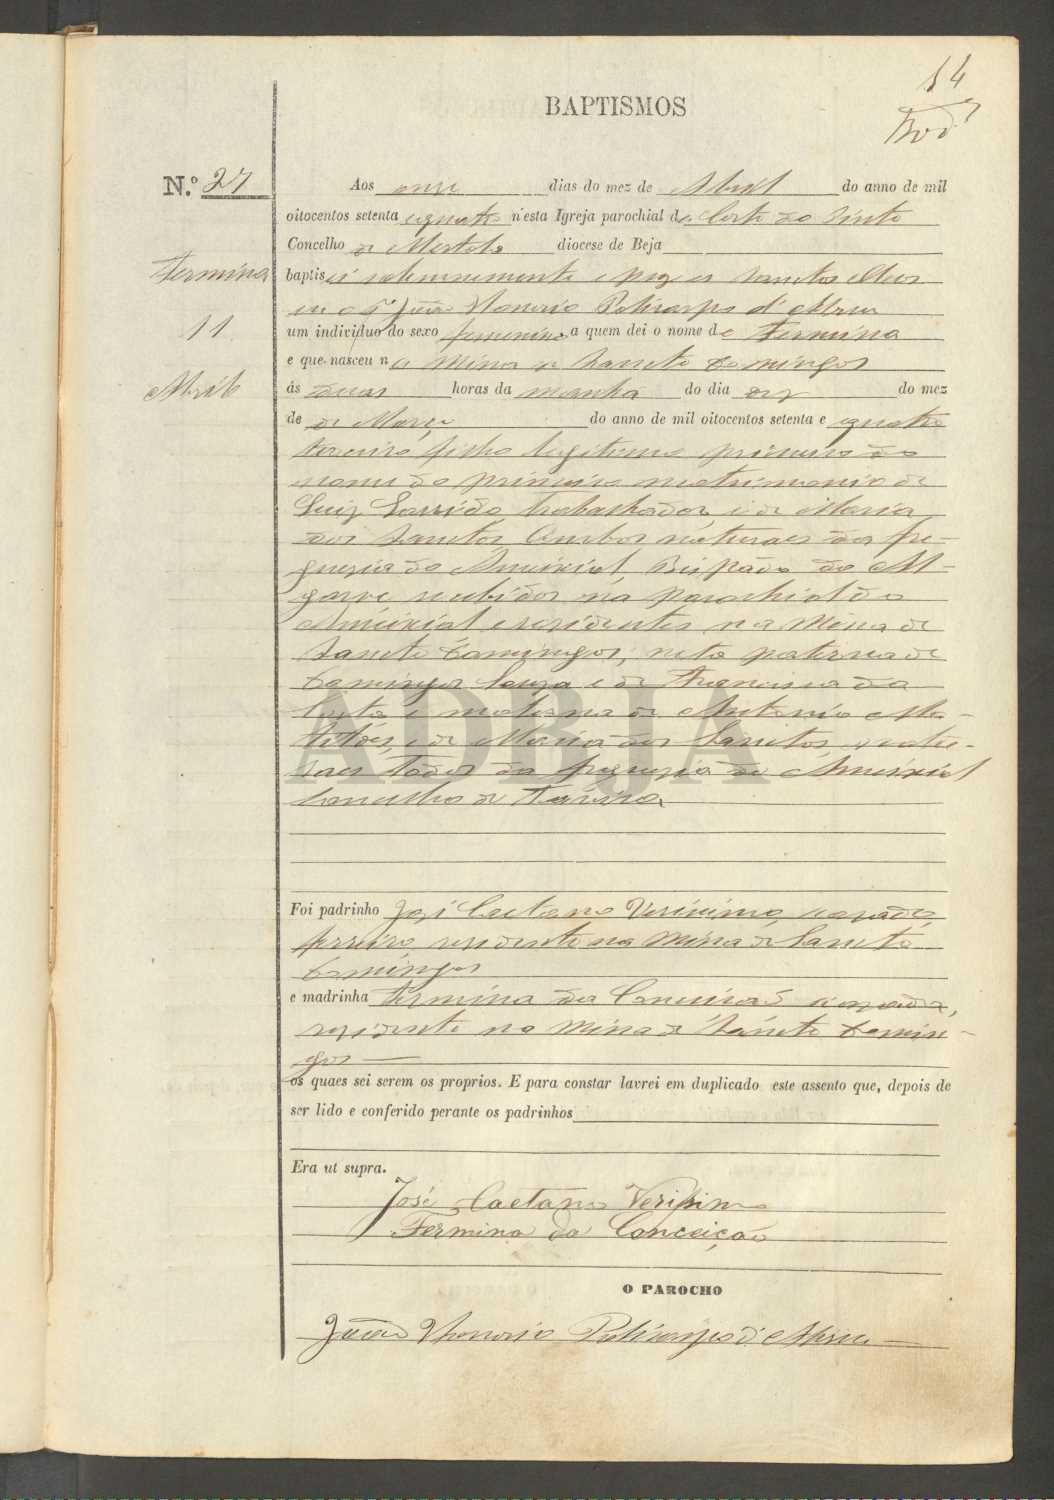 14
BAPTISMOS
N.º 27
Aos onze dias do mez de Abril do anno de mil
oitocentos setenta e quatro n'esta Igreja parochial de Corte do Pinto
Concelho de Mertola diocese de Beja
Fermina
11
Abril
baptisei solemnemente e puz os Sanctos Oleos
eu o P.e João Honorio Policarpo d'Abreu
um individuo do sexo femenino a quem dei o nome de Fermina
e que nasceu na Mina de Sancto Domingos
ás duas horas da manhã do dia dez do mez
de de Março do anno de mil oitocentos setenta e quatro
terceiro filho legitimo primeiro do
nome do primeiro matrimonio de
Luiz trabalhador, e de Maria
dos Sanctos, ambos naturaes da fre-
guezia do Ameixial, Bispado do Al-
garve recebidos na parochial do
Ameixial e residentes na Mina de
Sancto Domingos; neta paterna de
Domingos Souza e de Francisca da
Costa e materna de Antonio
e de Maria dos Sanctos, natu-
raes todos da freguezia do Ameixial
Concelho de
Foi padrinho José Caetano Verissimo, casado,
ferreiro, residente na Mina de Sancto
Domingos
e madrinha Fermina da Conceicão casada,
residente na Mina de Sancto Domin-
gos —
os quaes sei serem os proprios. E para constar lavrei em duplicado este assento que, depois de
ser lido e conferido perante os padrinhos
Era ut supra.
José Caetano Verissimo
Fermina da Conceição
O PAROCHO
João Honorio Policarpo d'Abreu
ADBJA